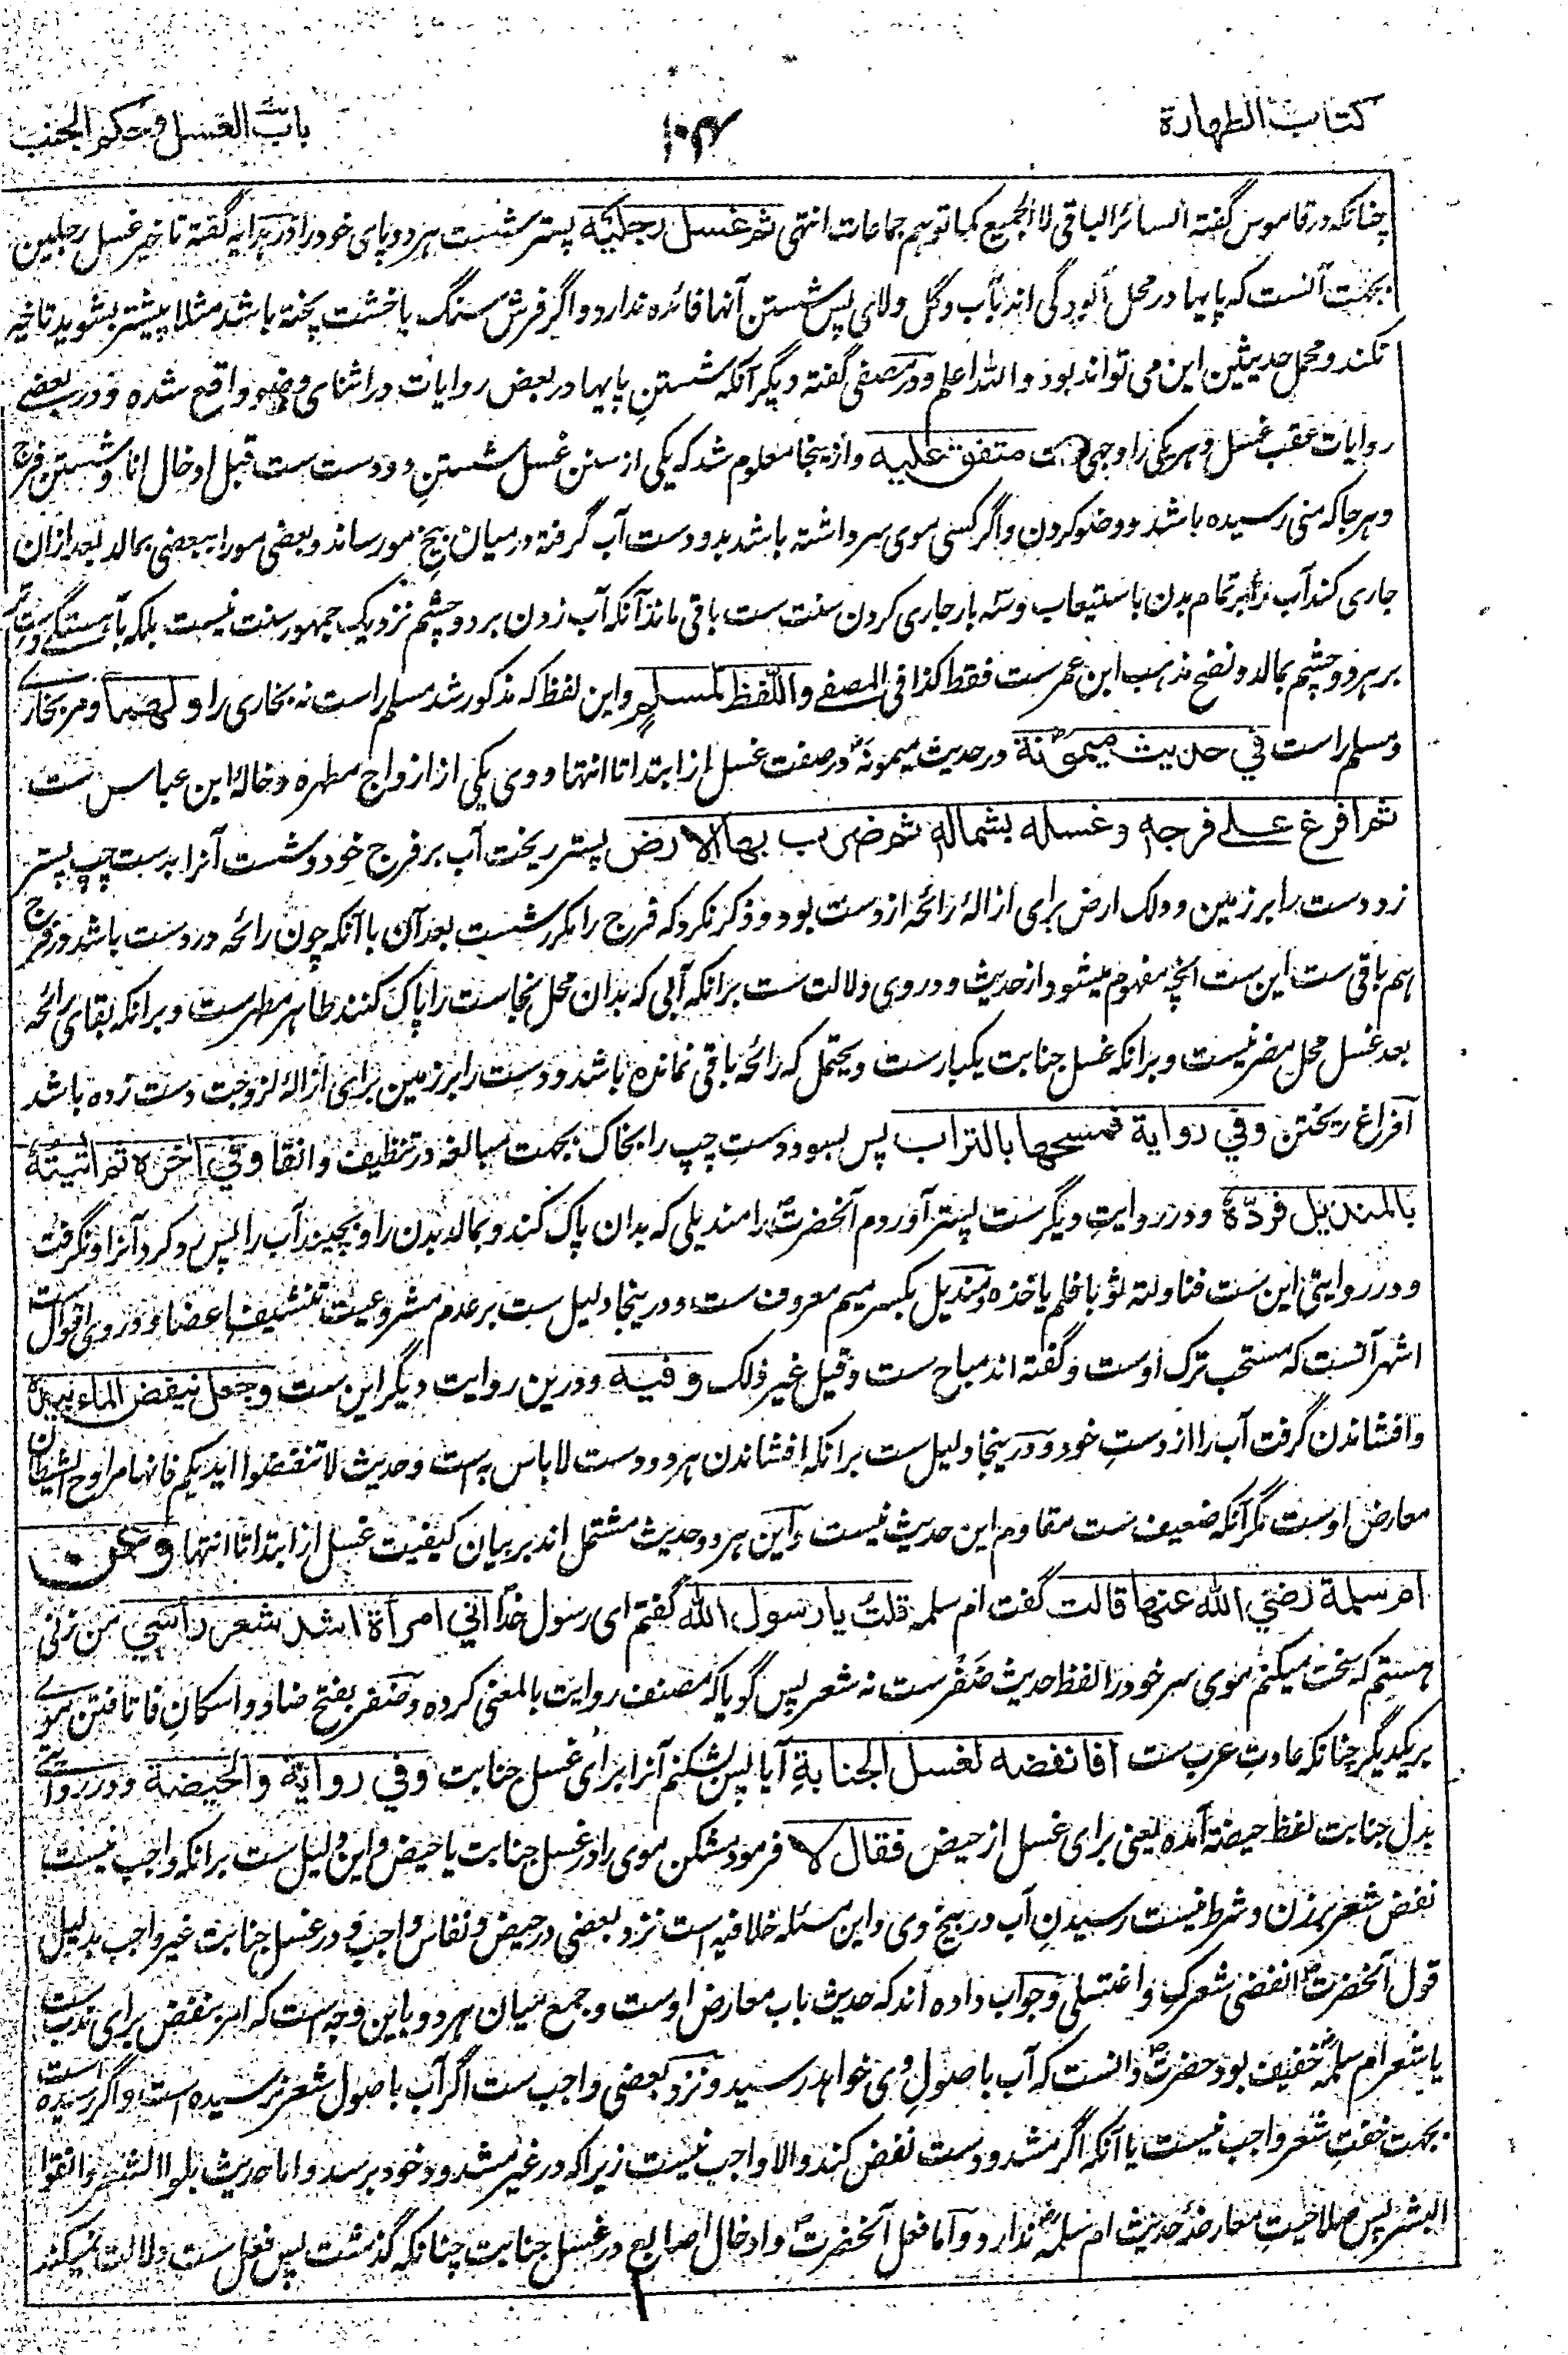 کتاب الطهارة
۱۰۴
باب الغسل وحکم الجنب
چنانکه در قاموس گفته السائر الباقی لا الجمیع کما توهم جماعات انتهی ثم غسل رجلیه پستر شست هر دو پای خود را در هدایه گفته تاخیر غسل رجلین
بجهت آنست که پایها در محل آلودگی اند بآب وگل ولای پس شستن آنها فائده ندارد واگر فرش سنگ یا خشت پخته باشد مثلا پیشتر بشوید تاخیر
نکند ومحمل حدیثین این می تواند بود والله اعلم ودر مصفی گفته دیگر آنکه شستن پایها در بعض روایات در اثنای وضو واقع شده ودر بعضے
روایات عقب غسل وهر یکی را وجهی ست متفق علیه وازینجا معلوم شد که یکی از سنن غسل شستن دو دست ست قبل ادخال انا وشستن فرج
وهر جا که منی رسیده باشد ووضو کردن واگر کسی موی سر داشته باشد بدو دست آب گرفته در میان بیخ مو رساند وبعضی مو را ببعضی بمالد بعد ازان
جاری کند آب را بر تمام بدن باستیعاب وسه بار جاری کردن سنت ست باقی ماند آنکه آب زدن بر دو چشم نزدیک جمهور سنت نیست بلکه بآهستگے دست
بر هر دو چشم بمالد ونضح مذهب ابن عمر ست فقط کذا فی المصفے واللفظ لمسلم واین لفظ که مذکور شد مسلم راست نه بخاری را ولهما ومر بخاری
ومسلم راست في حدیث میمونة در حدیث میمونه در صفت غسل از ابتدا تا انتها ووی یکی از ازواج مطهره وخاله ابن عباس ست
ثم افرغ علے فرجه وغسله بشماله ثم ضرب بها الارض پستر ریخت آب بر فرج خود وشست آنرا بدست چپ پستر
زد دست را بر زمین ودلک ارض برای ازاله رائحه از دست بود وذکر نکرد که فرج را مکرر شست بعد آن با آنکه چون رائحه در دست باشد در فرج
هم باقی ست این ست انچه مفهوم میشود از حدیث ودر وی دلالت ست برانکه آبی که بدان محل نجاست را پاک کنند طاهر مطهر ست وبرانکه بقای رائحه
بعد غسل محل مضر نیست وبرانکه غسل جنابت یکبار ست ویحتمل که رائحه باقی نمانده باشد ودست را بر زمین برای ازاله لزوجت دست زده باشد
افراغ ریختن وفي روایة فمسحها بالتراب پس بسود دست چپ را بخاک بجهت مبالغه در تنظیف وانقا وفي اخره ثم اتیته
بالمندیل فردّه ودر روایت دیگر ست پستر آوردم آنحضرت را مندیلی که بدان پاک کند وبمالد بدن را وبچیند آب را پس رد کرد آنرا ونگرفت
ودر روایتی این ست فناولته ثوبا فلم یاخذه ومندیل بکسر میم معروف ست ودرینجا دلیل ست بر عدم مشروعیت تنشیف اعضا ودر وی اقوال ست
اشهر آنست که مستحب ترک اوست وگفته اند مباح ست وقیل غیر ذلک وفیه ودرین روایت دیگر این ست وجعل ینفض الماء بیده
وافشاندن گرفت آب را از دست خود ودرینجا دلیل ست برانکه افشاندن هر دو دست لاباس به است وحدیث لا تنفضوا ایدیکم فانها مراوح الشیطان
معارض اوست مگر آنکه ضعیف ست مقاوم این حدیث نیست واین هر دو حدیث مشتمل اند بر بیان کیفیت غسل از ابتدا تا انتها وعن
ام سلمة رضي الله عنها قالت گفت ام سلمه قلت یا رسول الله گفتم ای رسول خدا اني امرأة اشد شعر رأسي من زنی
هستم که سخت میکنم موی سر خود را لفظ حدیث ضفر ست نه شعر پس گویا که مصنف روایت بالمعنی کرده وضفر بفتح ضاد واسکان فا تافتن موے
بر یکدیگر چنانکه عادت عرب ست أفانقضه لغسل الجنابة آیا پس بشکنم آنرا برای غسل جنابت وفي روایة والحیضة ودر روایتے
بدل جنابت لفظ حیضة آمده یعنی برای غسل از حیض فقال لا فرمود مشکن موی را در غسل جنابت یا حیض واین دلیل ست برانکه واجب نیست
نقض شعر بر زن وشرط نیست رسیدن آب در بیخ وی واین مسئله خلافیه است نزد بعضی در حیض ونفاس واجب ودر غسل جنابت غیر واجب بدلیل
قول آنحضرت انقضی شعرک واغتسلی وجواب داده اند که حدیث باب معارض اوست وجمع میان هر دو باین وجه است که امر بنقض برای ندب ست
یا شعر ام سلمه خفیف بود حضرت دانست که آب باصول وی خواهد رسید ونزد بعضی واجب ست اگر آب باصول شعر نرسیده است واگر رسیده است
بجهت خفت شعر واجب نیست یا آنکه اگر مشدود ست نقض کند والا واجب نیست زیرا که در غیر مشدود خود برسد واما حدیث بلوا الشعر وانقوا
البشر پس صلاحیت معارضه حدیث ام سلمه ندارد واما فعل آنحضرت وادخال اصابع در غسل جنابت چنانکه گذشت پس فعل ست دلالت نمیکند